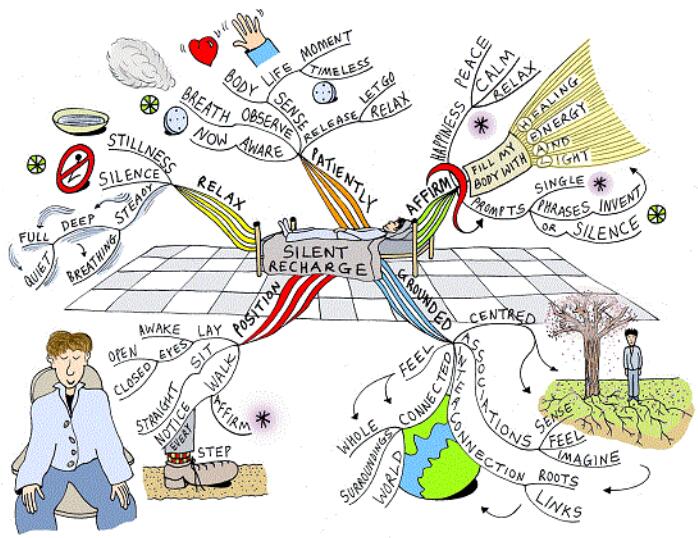 SILENT
RECHARGE
RELAX
STILLNESS
SILENCE
STEADY
DEEP
FULL
QUIET
BREATHING
PATIENTLY
NOW AWARE
BREATH OBSERVE
BODY SENSE
LIFE MOMENT
TIMELESS
RELEASE LET GO
RELAX
AFFIRM
HAPPINESS
PEACE
CALM
RELAX
FILL MY
BODY WITH
HEALING
ENERGY
AND
LIGHT
PROMPTS
SINGLE
PHRASES INVENT
OR SILENCE
GROUNDED
CENTRED
ASSOCIATIONS
SENSE
FEEL
IMAGINE
INTERCONNECTION
ROOTS
LINKS
FEEL
CONNECTED
WHOLE
SURROUNDINGS
WORLD
POSITION
LAY
AWAKE
EYES
OPEN
CLOSED
SIT
STRAIGHT
WALK
NOTICE
EVERY
STEP
AFFIRM